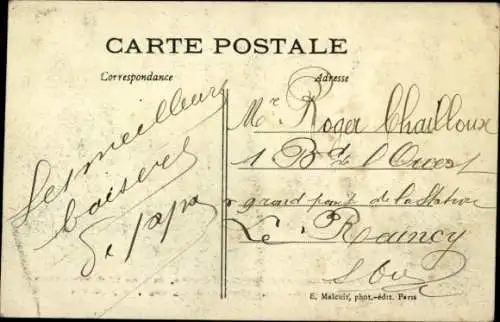 CARTE POSTALE
Correspondance
Adresse
Les meilleurs
baisers
De papa
Mr Roger Chailloux
1 Bd de l'Ouest
grand pont de la Station
Le Raincy
S. Oise
E. Malcuit, phot.-édit. Paris